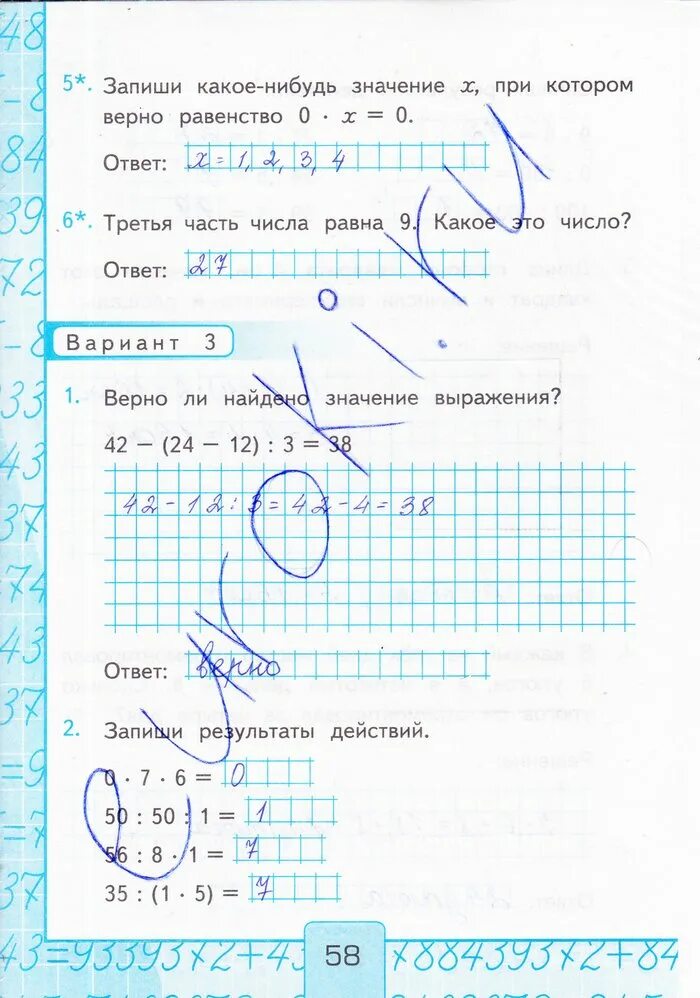 5*. Запиши какое-нибудь значение x, при котором
верно равенство 0 · x = 0.
Ответ: x = 1, 2, 3, 4
6*. Третья часть числа равна 9. Какое это число?
Ответ: 27
Вариант 3
1. Верно ли найдено значение выражения?
42 − (24 − 12) : 3 = 38
42 - 12 : 3 = 42 - 4 = 38
Ответ: верно
2. Запиши результаты действий.
0 · 7 · 6 = 0
50 : 50 : 1 = 1
56 : 8 · 1 = 7
35 : (1 · 5) = 7
58